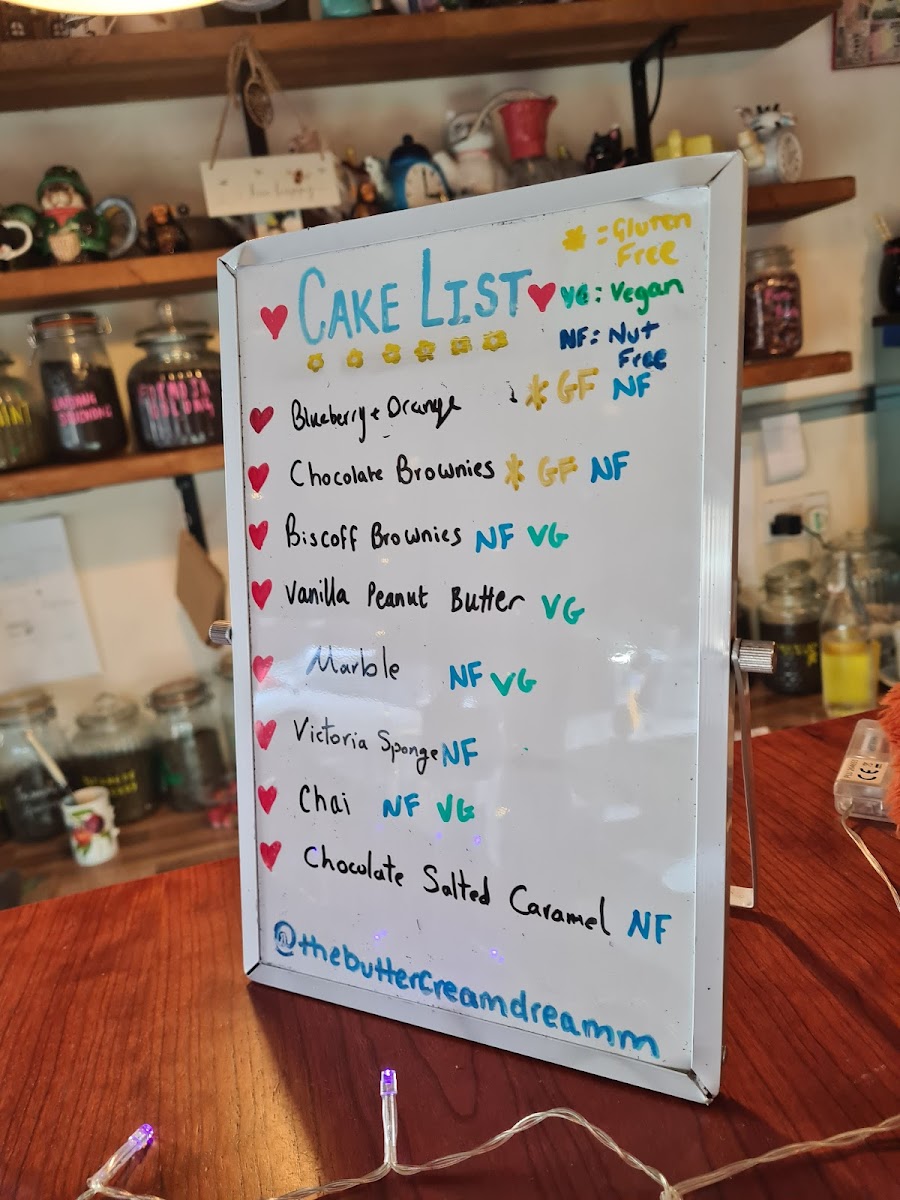 * = Gluten
Free
CAKE LIST
VG : Vegan
NF: Nut
Free
Blueberry + Orange * GF NF
Chocolate Brownies * GF NF
Biscoff Brownies NF VG
Vanilla Peanut Butter VG
Marble NF VG
Victoria Sponge NF
Chai NF VG
Chocolate Salted Caramel NF
@thebuttercreamdreamm
CE